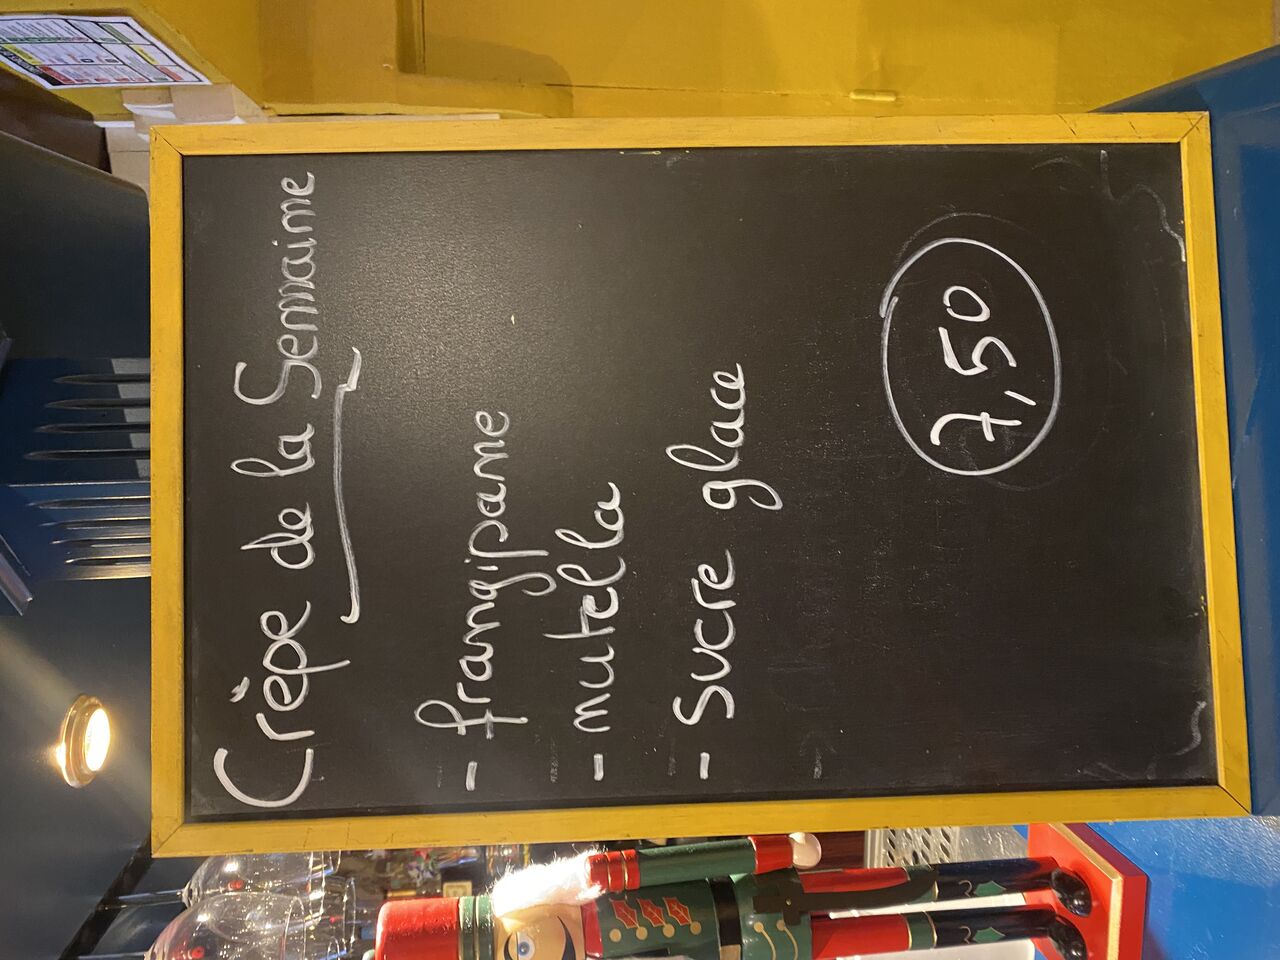 Crêpe de la Semaine
- frangipane
- nutella
- sucre glace
7,50